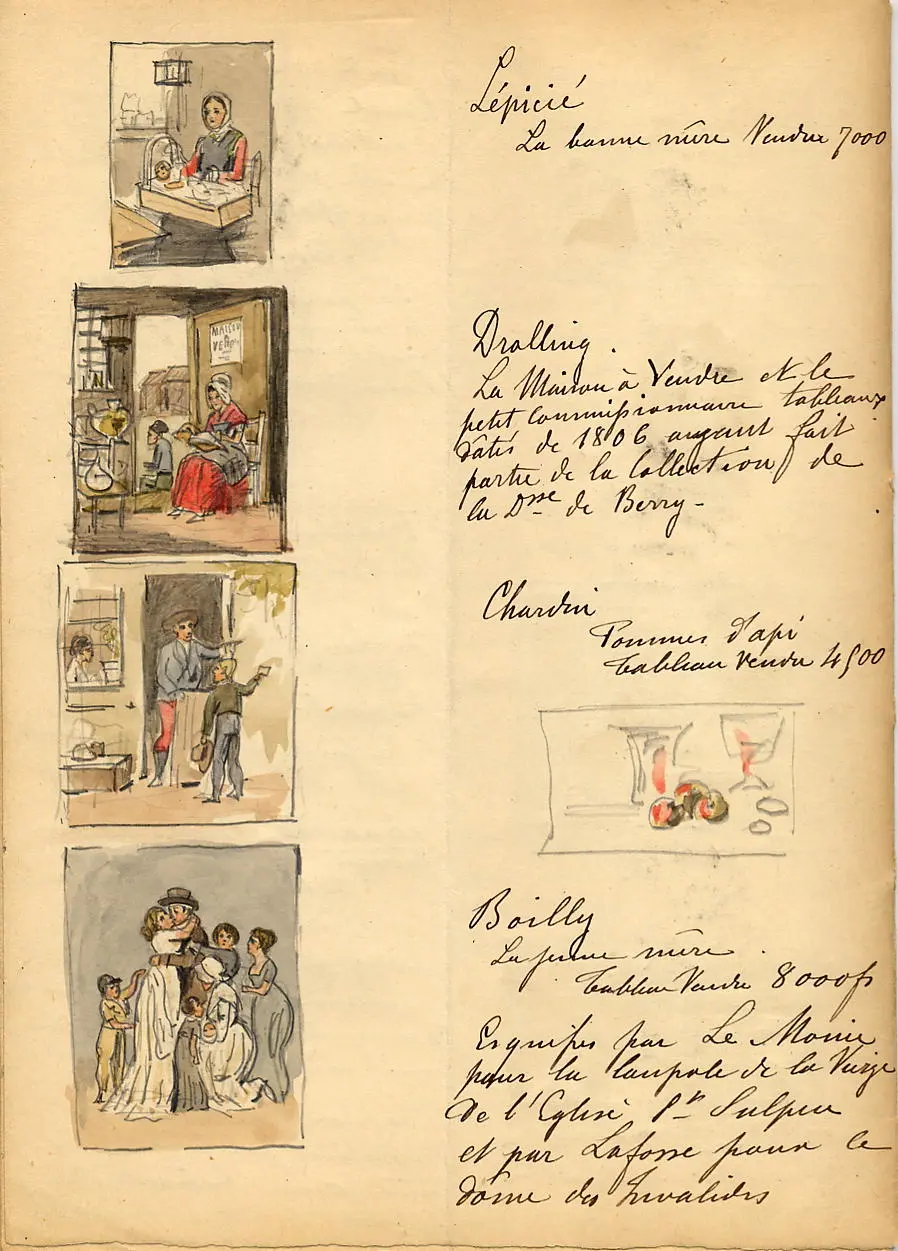 Lépicié
La bonne mère Vendue 7000
MAISON
A
VENDRE
Drolling.
La Maison à Vendre et le
petit Commissionnaire tableaux
datés de 1806 ayant fait
partie de la Collection de
la Dsse de Berry -
Chardin
Pommes d'api
tableau vendu 4500
Boilly
La jeune mère.
tableau Vendu 8000fs
Esquisses par Le Moine
pour la Coupole de la Vierge
De l'Eglise St Sulpice
et par Lafosse pour le
dôme des Invalides